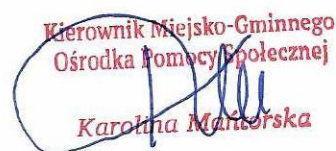 Kierownik Miejsko-Gminnego
Ośrodka Pomocy Społecznej
Karolina Mantorska